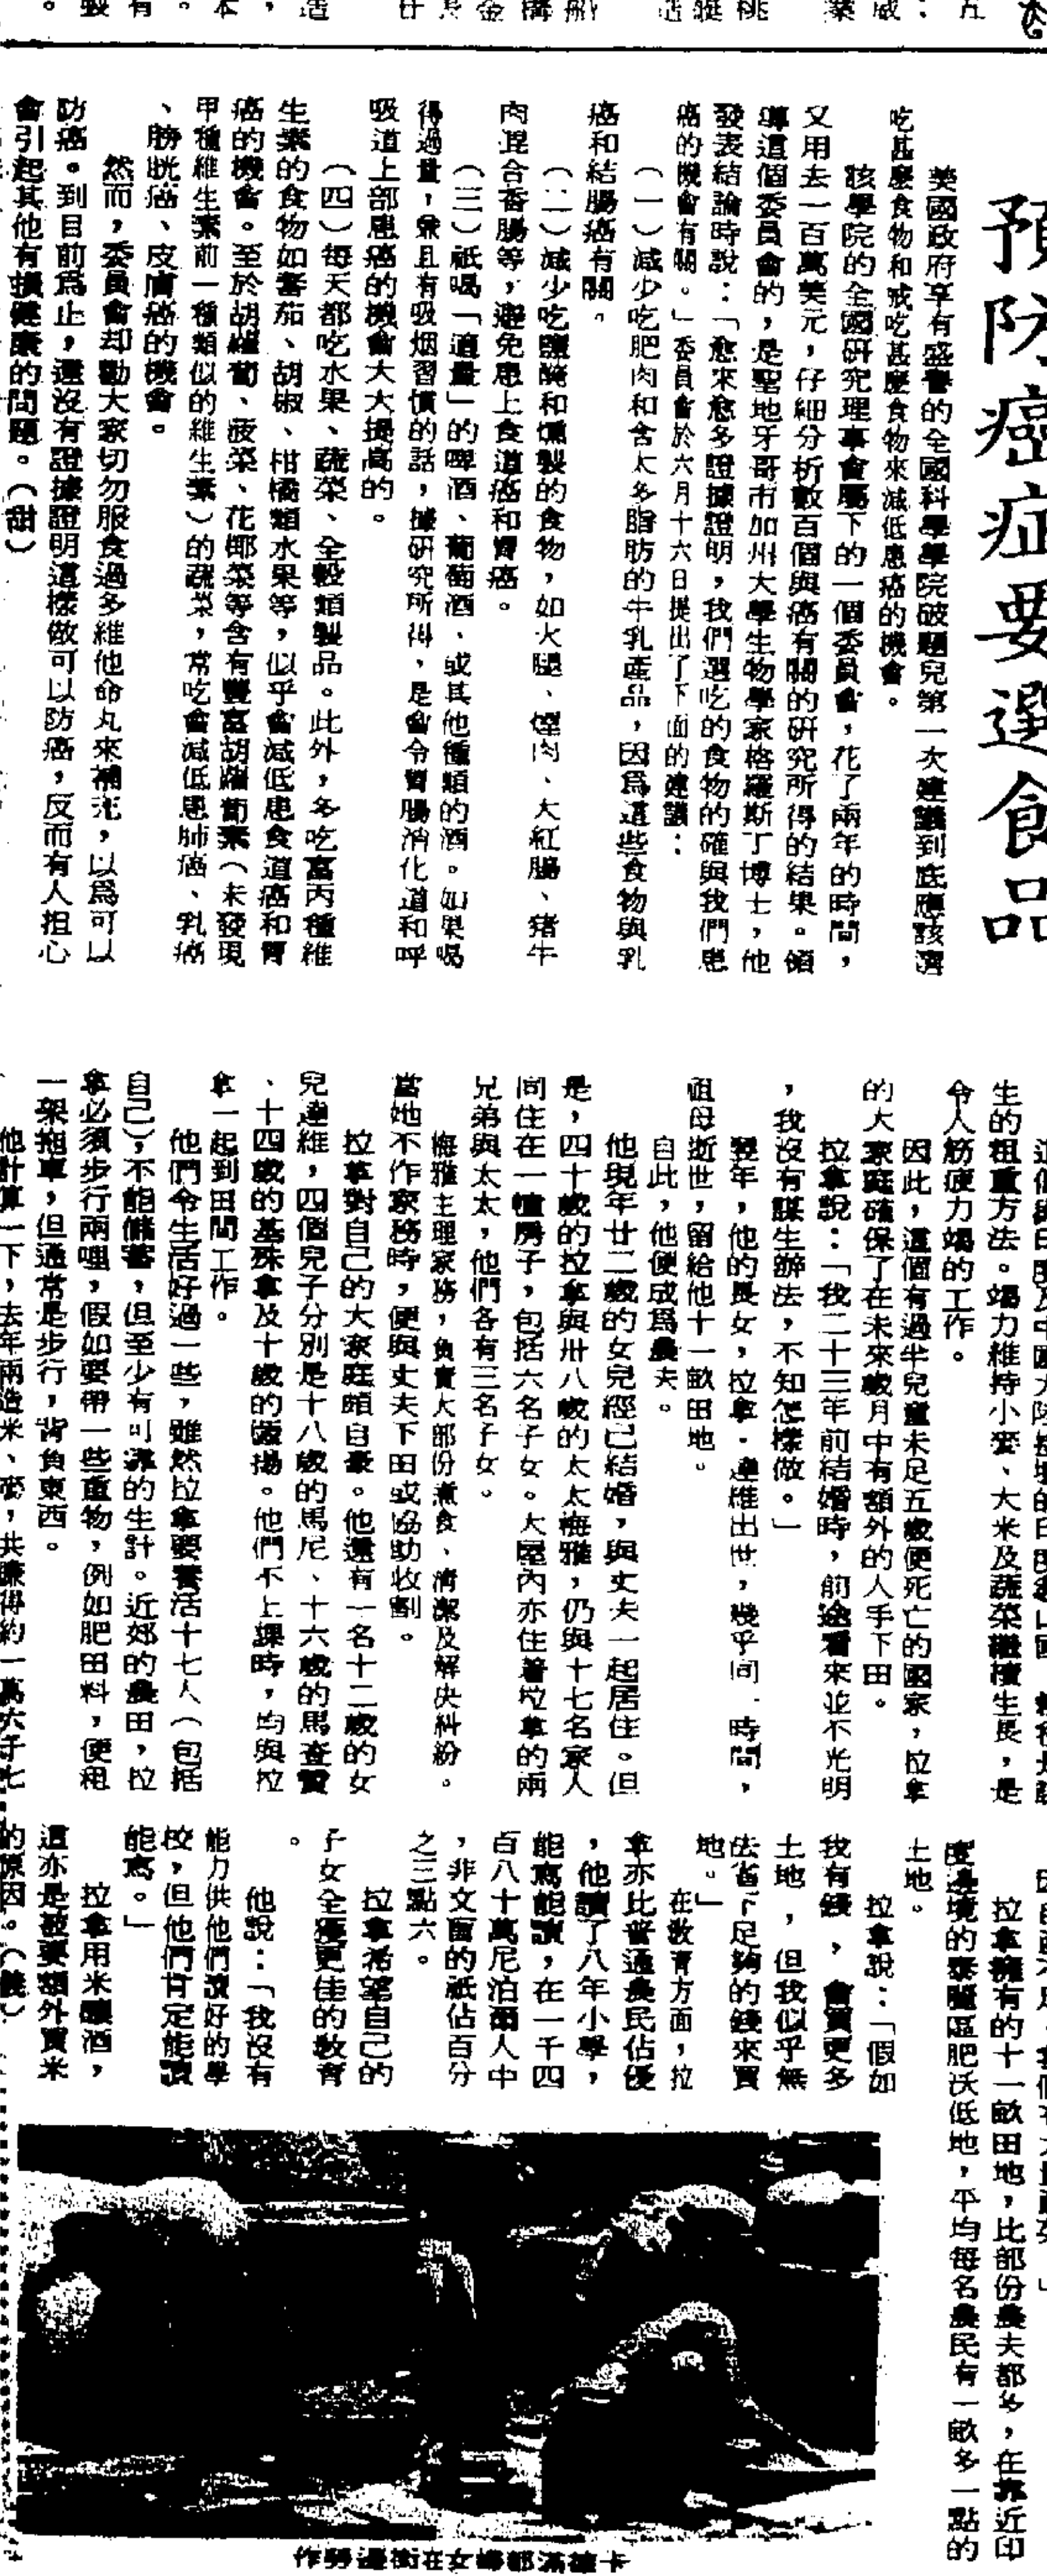 預防癌症要選食品
美國政府享有盛譽的全國科學學院破題兒第一次建議到底應該選
吃甚麼食物和戒吃甚麼食物來減低患癌的機會。
該學院的全國研究理事會屬下的一個委員會，花了兩年的時間，
又用去一百萬美元，仔細分析數百個與癌有關的研究所得的結果。領
導這個委員會的，是聖地牙哥市加州大學生物學家格羅斯丁博士，他
發表結論時說：「愈來愈多證據證明，我們選吃的食物的確與我們患
癌的機會有關。」委員會於六月十六日提出了下面的建議：
（一）減少吃肥肉和含太多脂肪的牛乳產品，因爲這些食物與乳
癌和結腸癌有關。
（二）減少吃鹽醃和燻製的食物，如火腿、煙肉、大紅腸、猪牛
肉混合香腸等，避免患上食道癌和胃癌。
（三）祇喝「適量」的啤酒、葡萄酒、或其他種類的酒。如果喝
得過量，兼且有吸烟習慣的話，據研究所得，是會令胃腸消化道和呼
吸道上部患癌的機會大大提高的。
（四）每天都吃水果、蔬菜、全穀類製品。此外，多吃富丙種維
生素的食物如蕃茄、胡椒、柑橘類水果等，似乎會減低患食道癌和胃
癌的機會。至於胡蘿蔔、菠菜、花椰菜等含有豐富胡蘿蔔素（未發現
甲種維生素前一種類似的維生素）的蔬菜，常吃會減低患肺癌、乳癌
、膀胱癌、皮膚癌的機會。
然而，委員會却勸大家切勿服食過多維他命丸來補充，以爲可以
防癌。到目前爲止，還沒有證據證明這樣做可以防癌，反而有人担心
會引起其他有損健康的問題。（甜）
生的粗重方法。竭力維持小麥、大米及蔬菜繼續生長，是
令人筋疲力竭的工作。
因此，這個有過半兒童未足五歲便死亡的國家，拉拿
的大家庭確保了在未來歲月中有額外的人手下田。
拉拿說：「我二十三年前結婚時，前途看來並不光明
，我沒有謀生辦法，不知怎樣做。」
翌年，他的長女，拉拿·達維出世，幾乎同一時間，
祖母逝世，留給他十一畝田地。
自此，他便成爲農夫。
他現年廿二歲的女兒經已結婚，與丈夫一起居住。但
是，四十歲的拉拿與卅八歲的太太梅雅，仍與十七名家人
同住在一幢房子，包括六名子女。大屋內亦住着拉拿的兩
兄弟與太太，他們各有三名子女。
梅雅主理家務，負責大部份煮食、清潔及解决糾紛。
當她不作家務時，便與丈夫下田或協助收割。
拉拿對自己的大家庭頗自豪。他還有一名十二歲的女
兒達維，四個兒子分別是十八歲的馬尼、十六歲的馬查賈
、十四歲的基殊拿及十歲的廼揚。他們不上課時，均與拉
拿一起到田間工作。
他們令生活好過一些，雖然拉拿要養活十七人（包括
自己），不能儲蓄，但至少有可靠的生計。近郊的農田，拉
拿必須步行兩哩，假如要帶一些重物，例如肥田料，便租
一架拖車，但通常是步行，背負東西。
他計算一下，去年兩造米、麥，共賺得約一萬六千七
拉拿擁有的十一畝田地，比部份農夫都多，在靠近印
度邊境的泰麗區肥沃低地，平均每名農民有一畝多一點的
土地。
拉拿說：「假如
我有錢，會買更多
土地，但我似乎無
法省下足夠的錢來買
地。」
在教育方面，拉
拿亦比普通農民佔優
，他讀了八年小學，
能寫能讀，在一千四
百八十萬尼泊爾人中
，非文盲的祇佔百分
之三點六。
拉拿希望自己的
子女全獲更佳的教育
。
他說：「我沒有
能力供他們讀好的學
校，但他們肯定能讀
能寫。」
拉拿用米釀酒，
這亦是被要額外買米
的原因。（義）
卡德滿都婦女在街邊勞作